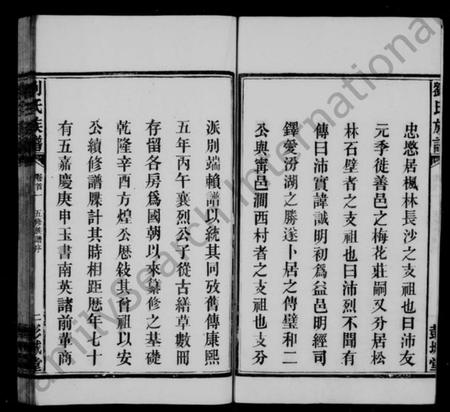 劉氏族譜
忠愍居楓林長沙之支祖也曰沛友
元季徙善邑之梅花莊嗣又分居松
林石壁者之支祖也曰沛烈不聞有
傳曰沛實諱誠明初為益邑明經司
鐸愛汾湖之勝遂卜居之傳璧和二
公與甯邑澗西村者之支祖也支分
彭城堂
派別端賴譜以統其同攷舊傳康熙
五年丙午襄烈公子從古繕草數冊
存留各房爲國朝以來纂修之基礎
乾隆辛酉方煌公歷敍其什祖以安
公續修譜牒計其時相距歷年七十
有五嘉慶庚申玉書南英諸前輩商
劉氏族譜
卷首
五修族譜序
二
彭城堂
FamilySearch International